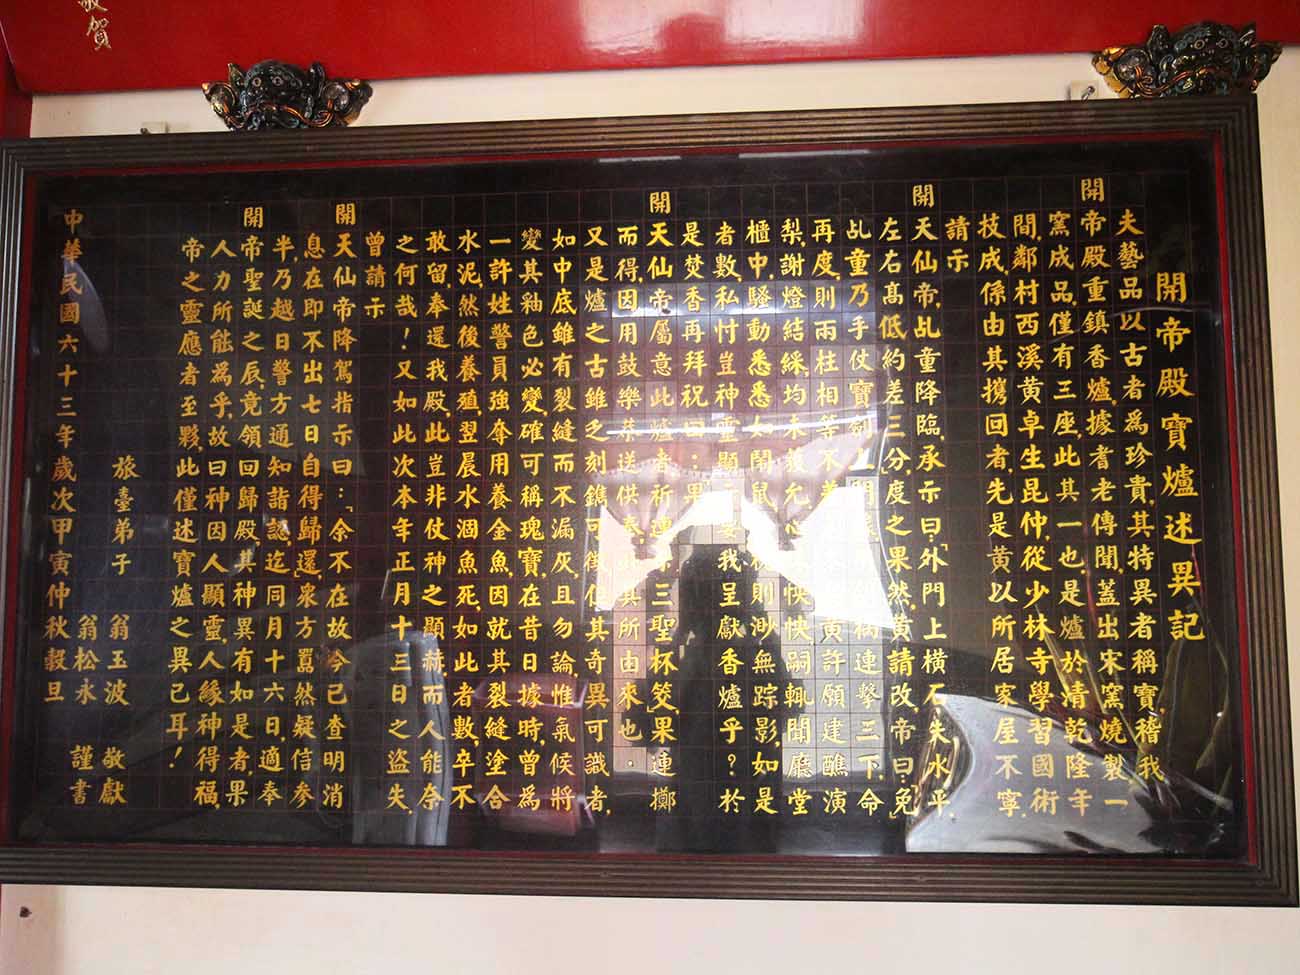 敬賀
開帝殿寶爐述異記
夫藝品以古者為珍貴，其特異者稱寶，稽我
開帝殿重鎮香爐，據耆老傳聞，蓋出宋窯燒製一
窯成品，僅有三座，此其一也是爐於清乾隆年
間，鄰村西溪黃卓生昆仲，從少林寺學習國術
技成，係由其攜回者，先是黃以所居家屋不寧，
請示
開天仙帝，乩童降臨，承示曰：「外門上橫石失水平，
左右高低約差三分，度之果然，黃請改，帝曰：免」
乩童乃手仗寶劍 門 連擊三下，命
再度，則兩柱相等不差 黃許願建醮演
梨，謝燈結綵，均未獲允，心 快快，嗣輒聞廳堂
櫃中，騷動悉悉，悉如鬧鼠， 視則渺無踪影，如是
者數，私忖豈神靈顯 要我呈獻香爐乎？於
是焚香再拜祝曰：果
開天仙帝屬意此爐者祈連 三聖杯筊，果連擲
而得，因用鼓樂恭送供奉，此其所由來也．
又是爐之古雖之刻鐫可徵，但其奇異可識者，
如中底雖有裂縫而不漏灰且勿論，惟氣候將
變其釉色必變，確可稱瑰寶，在昔日據時，曾為
一許姓警員強奪用養金魚，因就其裂縫塗合
水泥，然後養殖，翌晨水涸魚死，如此者數，卒不
敢留，奉還我殿，此豈非仗神之顯赫，而人能奈
之何哉！又如此次本年正月十三日之盜失，
曾請示
開天仙帝降駕指示曰：「余不在故今已查明消
息在即不出七日自得歸還」，眾方囂然疑信參
半，乃越日警方通知詣認，迄同月十六日，適奉
開帝聖誕之辰，竟領回歸殿，其神異有如是者，果
人力所能為乎，故曰神因人顯靈，人緣神得福，
帝之靈應者至夥，此僅述寶爐之異已耳！
旅臺弟子 翁玉波 敬獻
翁松永 謹書
中華民國六十三年歲次甲寅仲秋穀旦